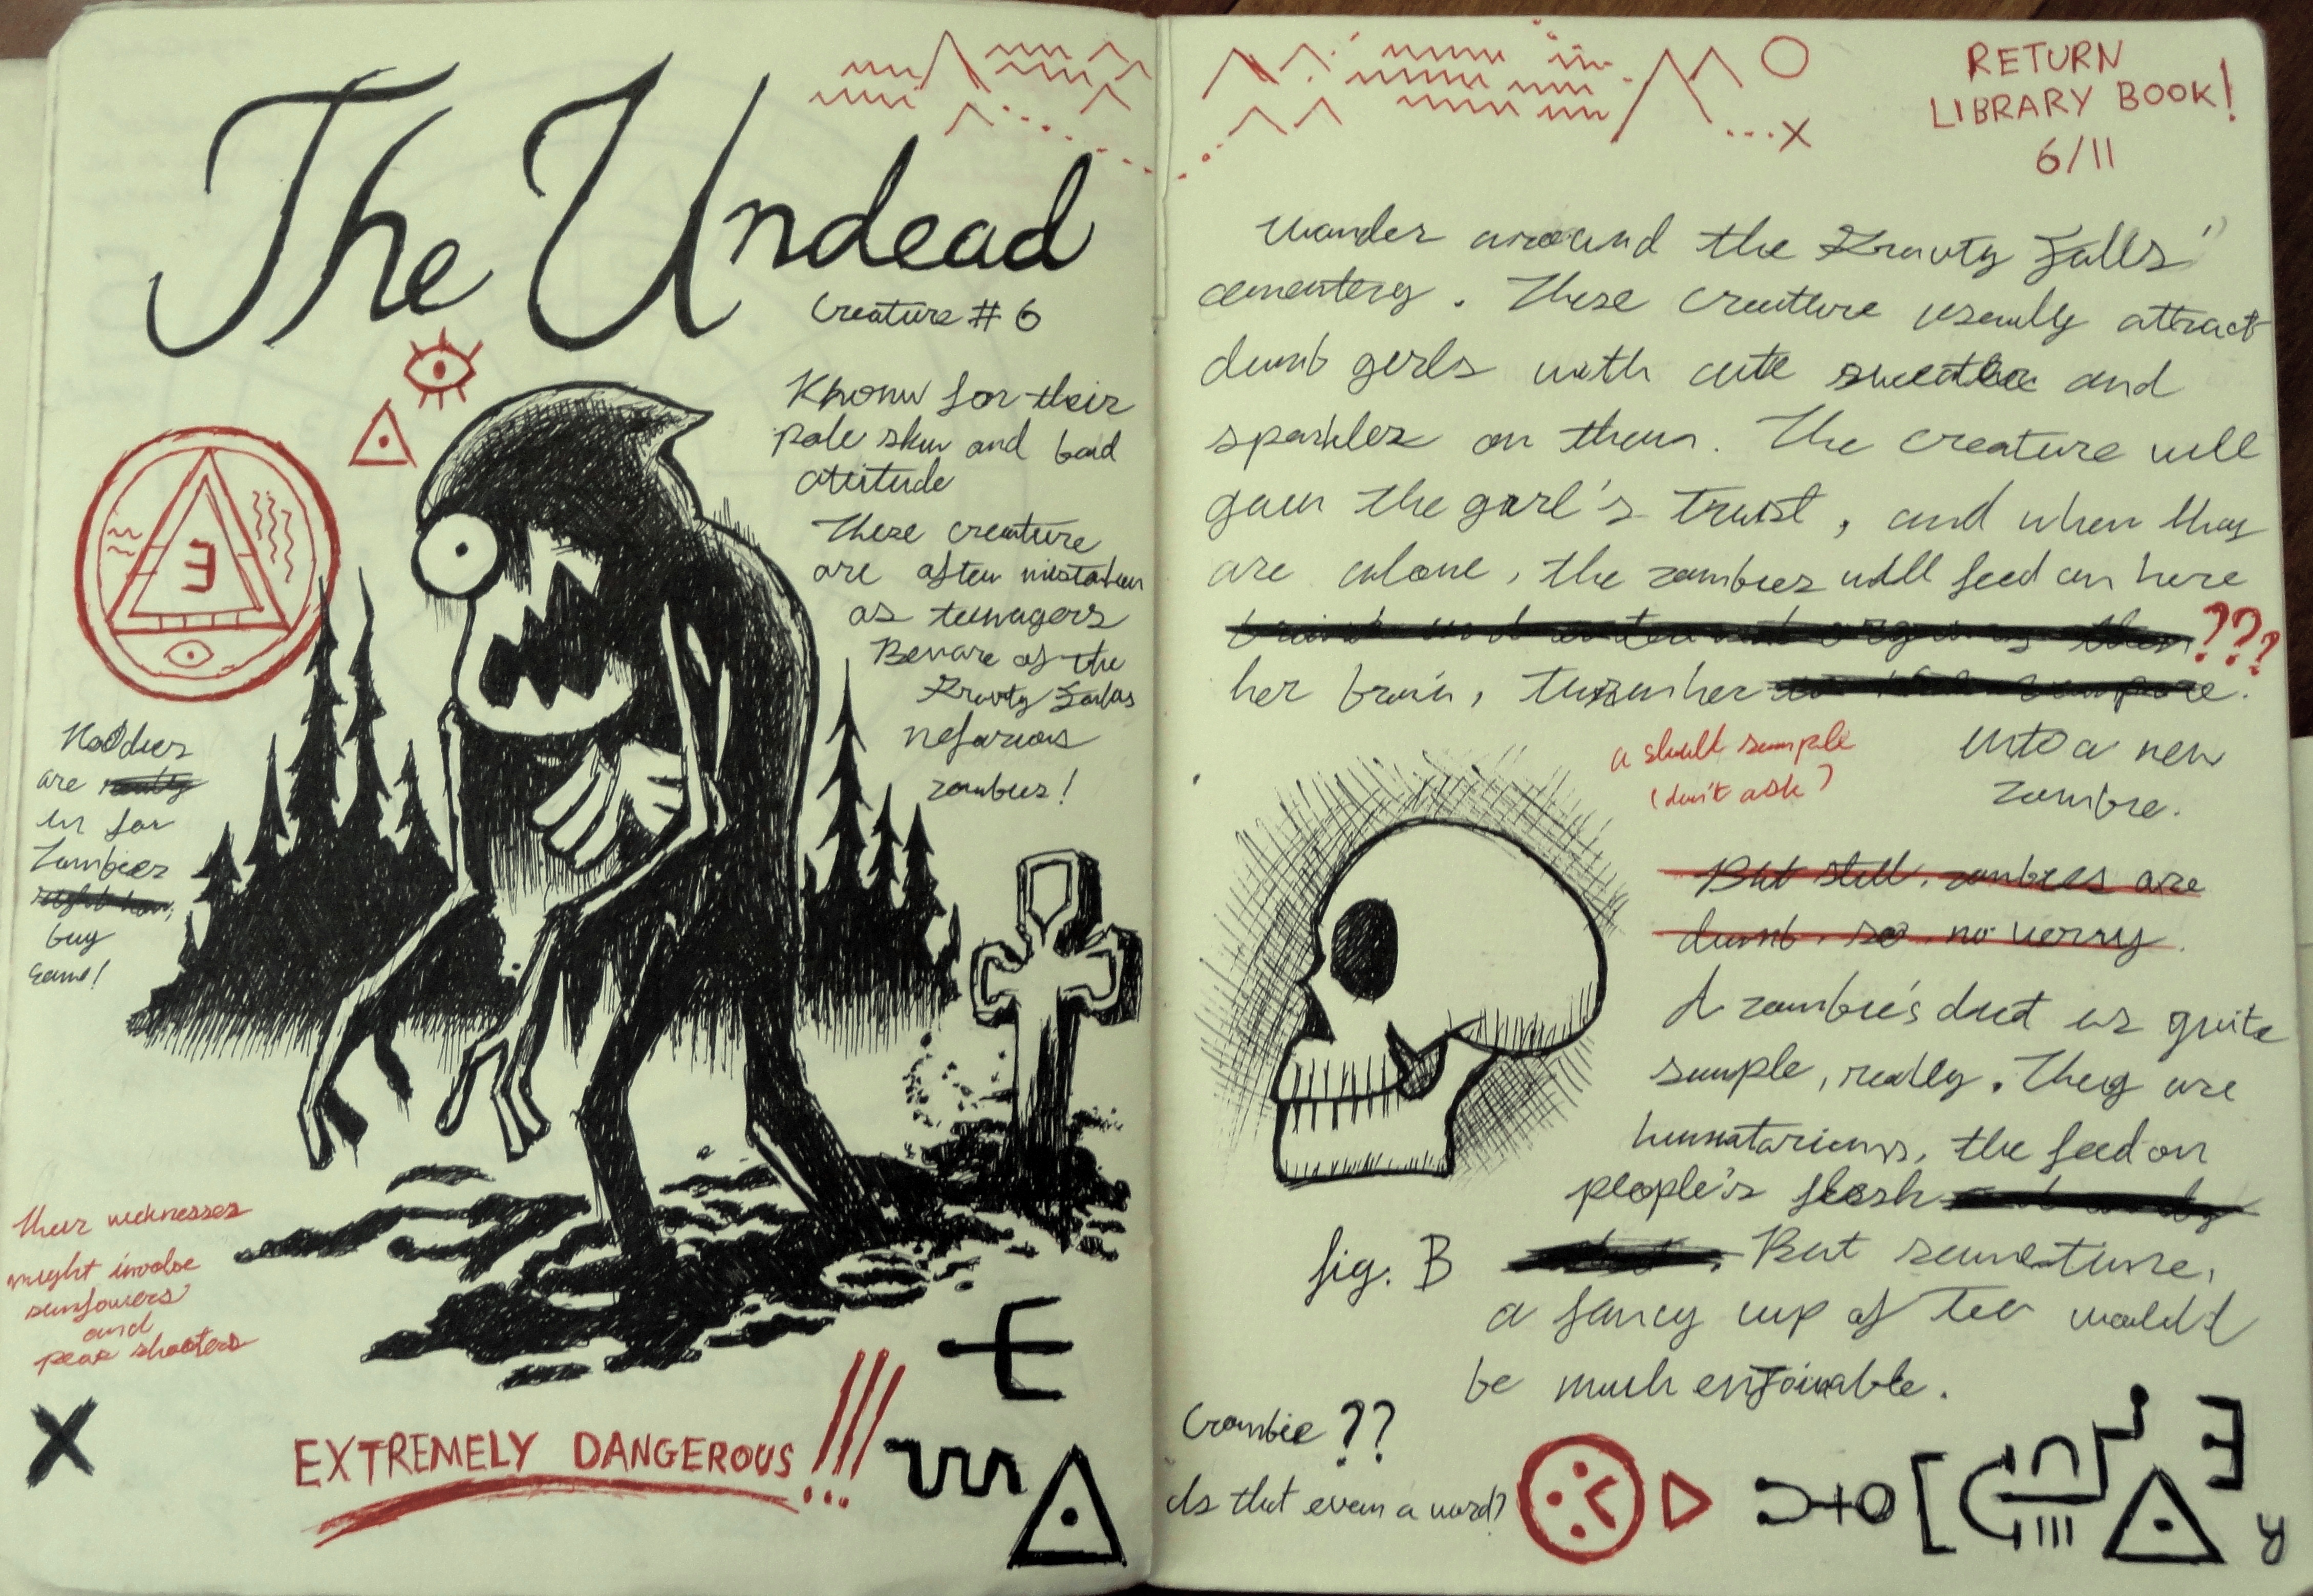 The Undead
Creature # 6
Known for their
pale skin and bad
attitude
These creature
are often mistaken
as teenagers
Beware of the
Gravity Falls
nefarious
zombies!
E
Hoodies
are really
in for
Zombies
right now,
buy
some!
their weknesses
might involve
sunflowers
and
pea shooters
X
EXTREMELY DANGEROUS!!!
RETURN
LIBRARY BOOK!
6/11
X
wander around the Gravity Falls'
cementery. These creature usually attract
dumb girls with cute sweater and
sparkles on them. The creature will
gain the girl's trust, and when they
are alone, the zombies will feed on here
???
her brain, turn her
into a new
zombie.
a skull sample
(don't ask)
But still, zombies are
dumb. so no worry.
A zombie's diet is quite
simple, really. They are
humatarians, the feed on
people's flesh
But sometime,
a fancy cup of tea would
be much enjoiable.
fig. B
Crombie??
Is that even a word?